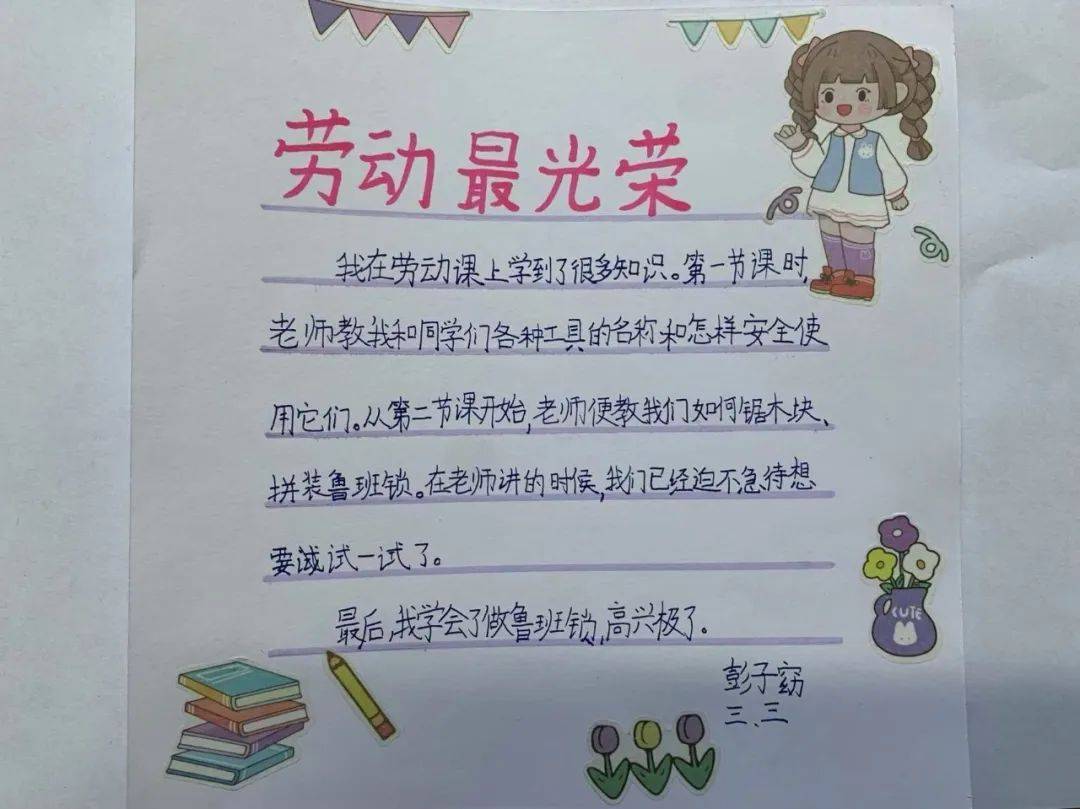 劳动最光荣
我在劳动课上学到了很多知识。第一节课时,
老师教我和同学们各种工具的名称和怎样安全使
用它们。从第二节课开始,老师便教我们如何锯木块、
拼装鲁班锁。在老师讲的时候,我们已经迫不急待想
要试试一试了。
最后,我学会了做鲁班锁,高兴极了。
CUTE
彭子窈
三、三